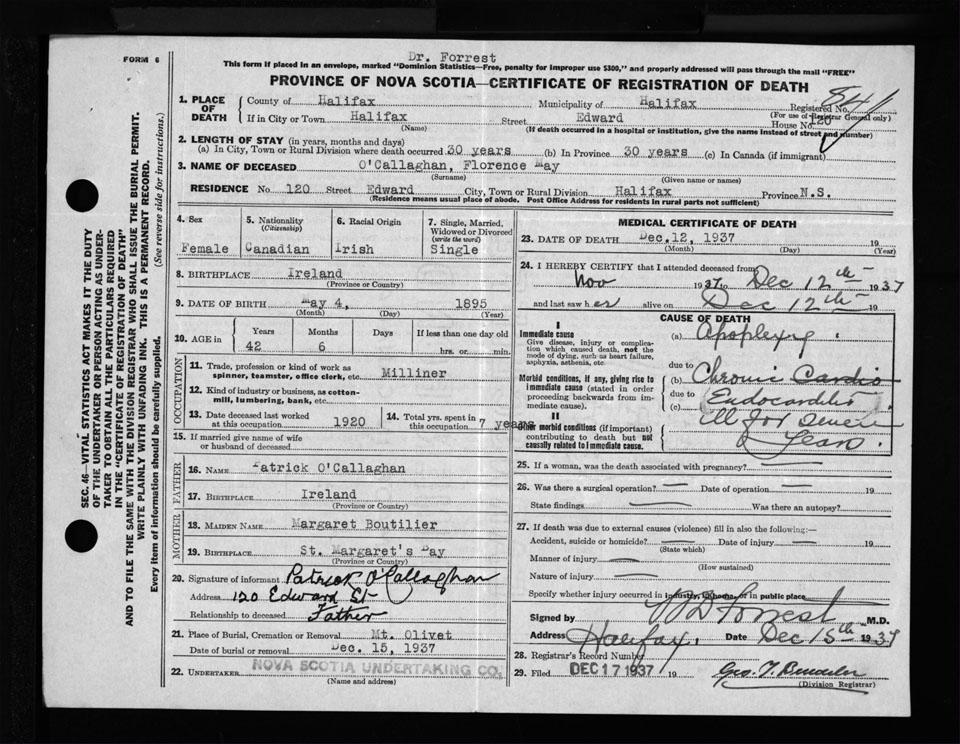 FORM 6
Dr. Forrest
This form if placed in an envelope, marked "Dominion Statistics—Free, penalty for improper use $300," and properly addressed will pass through the mail "FREE"
PROVINCE OF NOVA SCOTIA—CERTIFICATE OF REGISTRATION OF DEATH
SEC. 46—VITAL STATISTICS ACT MAKES IT THE DUTY
OF THE UNDERTAKER OR PERSON ACTING AS UNDER-
TAKER TO OBTAIN ALL THE PARTICULARS REQUIRED
IN THE "CERTIFICATE OF REGISTRATION OF DEATH"
AND TO FILE THE SAME WITH THE DIVISION REGISTRAR WHO SHALL ISSUE THE BURIAL PERMIT.
WRITE PLAINLY WITH UNFADING INK. THIS IS A PERMANENT RECORD.
Every item of information should be carefully supplied. (See reverse side for instructions.)
1. PLACE OF DEATH
County of Halifax Municipality of Halifax Registered No. 841
(For use of Registrar General only)
If in City or Town Halifax Street Edward House No. 120
(Name) (If death occurred in a hospital or institution, give the name instead of street and number)
2. LENGTH OF STAY (in years, months and days)
(a) In City, Town or Rural Division where death occurred 30 years (b) In Province 30 years (c) In Canada (if immigrant)
3. NAME OF DECEASED O'Callaghan, Florence May
(Surname) (Given name or names)
RESIDENCE No. 120 Street Edward City, Town or Rural Division Halifax Province N.S.
(Residence means usual place of abode. Post Office Address for residents in rural parts not sufficient)
4. Sex
Female
5. Nationality
(Citizenship)
Canadian
6. Racial Origin
Irish
7. Single, Married,
Widowed or Divorced
(write the word)
Single
8. BIRTHPLACE Ireland
(Province or Country)
9. DATE OF BIRTH May 4, 1895
(Month) (Day) (Year)
10. AGE in Years Months Days If less than one day old
42 6 hrs. or min.
OCCUPATION
11. Trade, profession or kind of work as
spinner, teamster, office clerk, etc. Milliner
12. Kind of industry or business, as cotton-
mill, lumbering, bank, etc.
13. Date deceased last worked
at this occupation 1920
14. Total yrs. spent in
this occupation 7 years
15. If married give name of wife
or husband of deceased
FATHER
16. NAME Patrick O'Callaghan
17. BIRTHPLACE Ireland
(Province or Country)
MOTHER
18. MAIDEN NAME Margaret Boutilier
19. BIRTHPLACE St. Margaret's Bay
(Province or Country)
20. Signature of informant Patrick O'Callaghan
Address 120 Edward St
Relationship to deceased Father
21. Place of Burial, Cremation or Removal Mt. Olivet
Date of burial or removal Dec. 15, 1937
22. UNDERTAKER NOVA SCOTIA UNDERTAKING CO.
(Name and address)
MEDICAL CERTIFICATE OF DEATH
23. DATE OF DEATH Dec.12, 1937 19
(Month) (Day) (Year)
24. I HEREBY CERTIFY that I attended deceased from
Nov 1937 to Dec 12th 1937
and last saw her alive on Dec 12th 19
CAUSE OF DEATH
I
Immediate cause
Give disease, injury or complica-
tion which caused death, not the
mode of dying, such as heart failure,
asphyxia, asthenia, etc.
(a) Apoplexy
due to
Morbid conditions, if any, giving rise to
immediate cause (stated in order
proceeding backwards from im-
mediate cause).
(b) Chronic Cardio
due to Endocarditis
(c)
II
Other morbid conditions (if important)
contributing to death but not
causally related to immediate cause.
Ill for
25. If a woman, was the death associated with pregnancy?
26. Was there a surgical operation? Date of operation 19
State findings Was there an autopsy?
27. If death was due to external causes (violence) fill in also the following:—
Accident, suicide or homicide? Date of injury 19
(State which)
Manner of injury
(How sustained)
Nature of injury
Specify whether injury occurred in industry, in home, or in public place
Signed by Forrest M.D.
Address Halifax Date Dec 15th 1937
28. Registrar's Record Number
29. Filed DEC 17 1937 19
(Division Registrar)